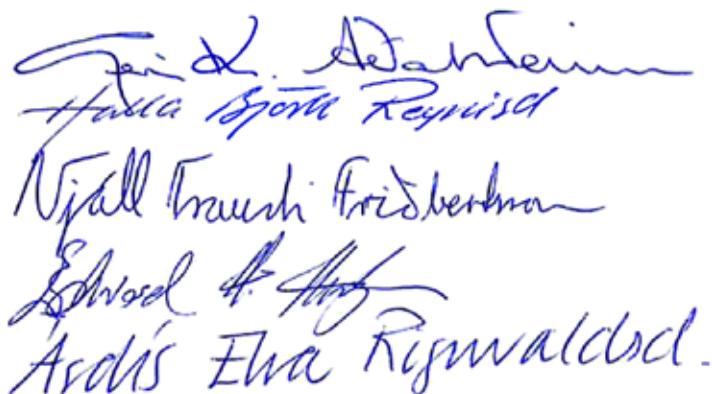 Geir K. Aðalsteinsson
Halla Björk Reynisd
Njáll Trausti Friðbertsson
Edward H. Huijbens
Árdís Elva Rögnvaldsd.